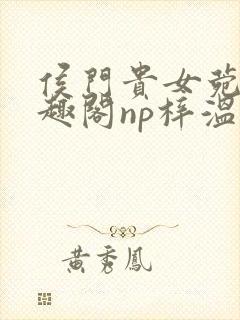 侯門貴女菀
趣閣np梓溫
黃秀鳳